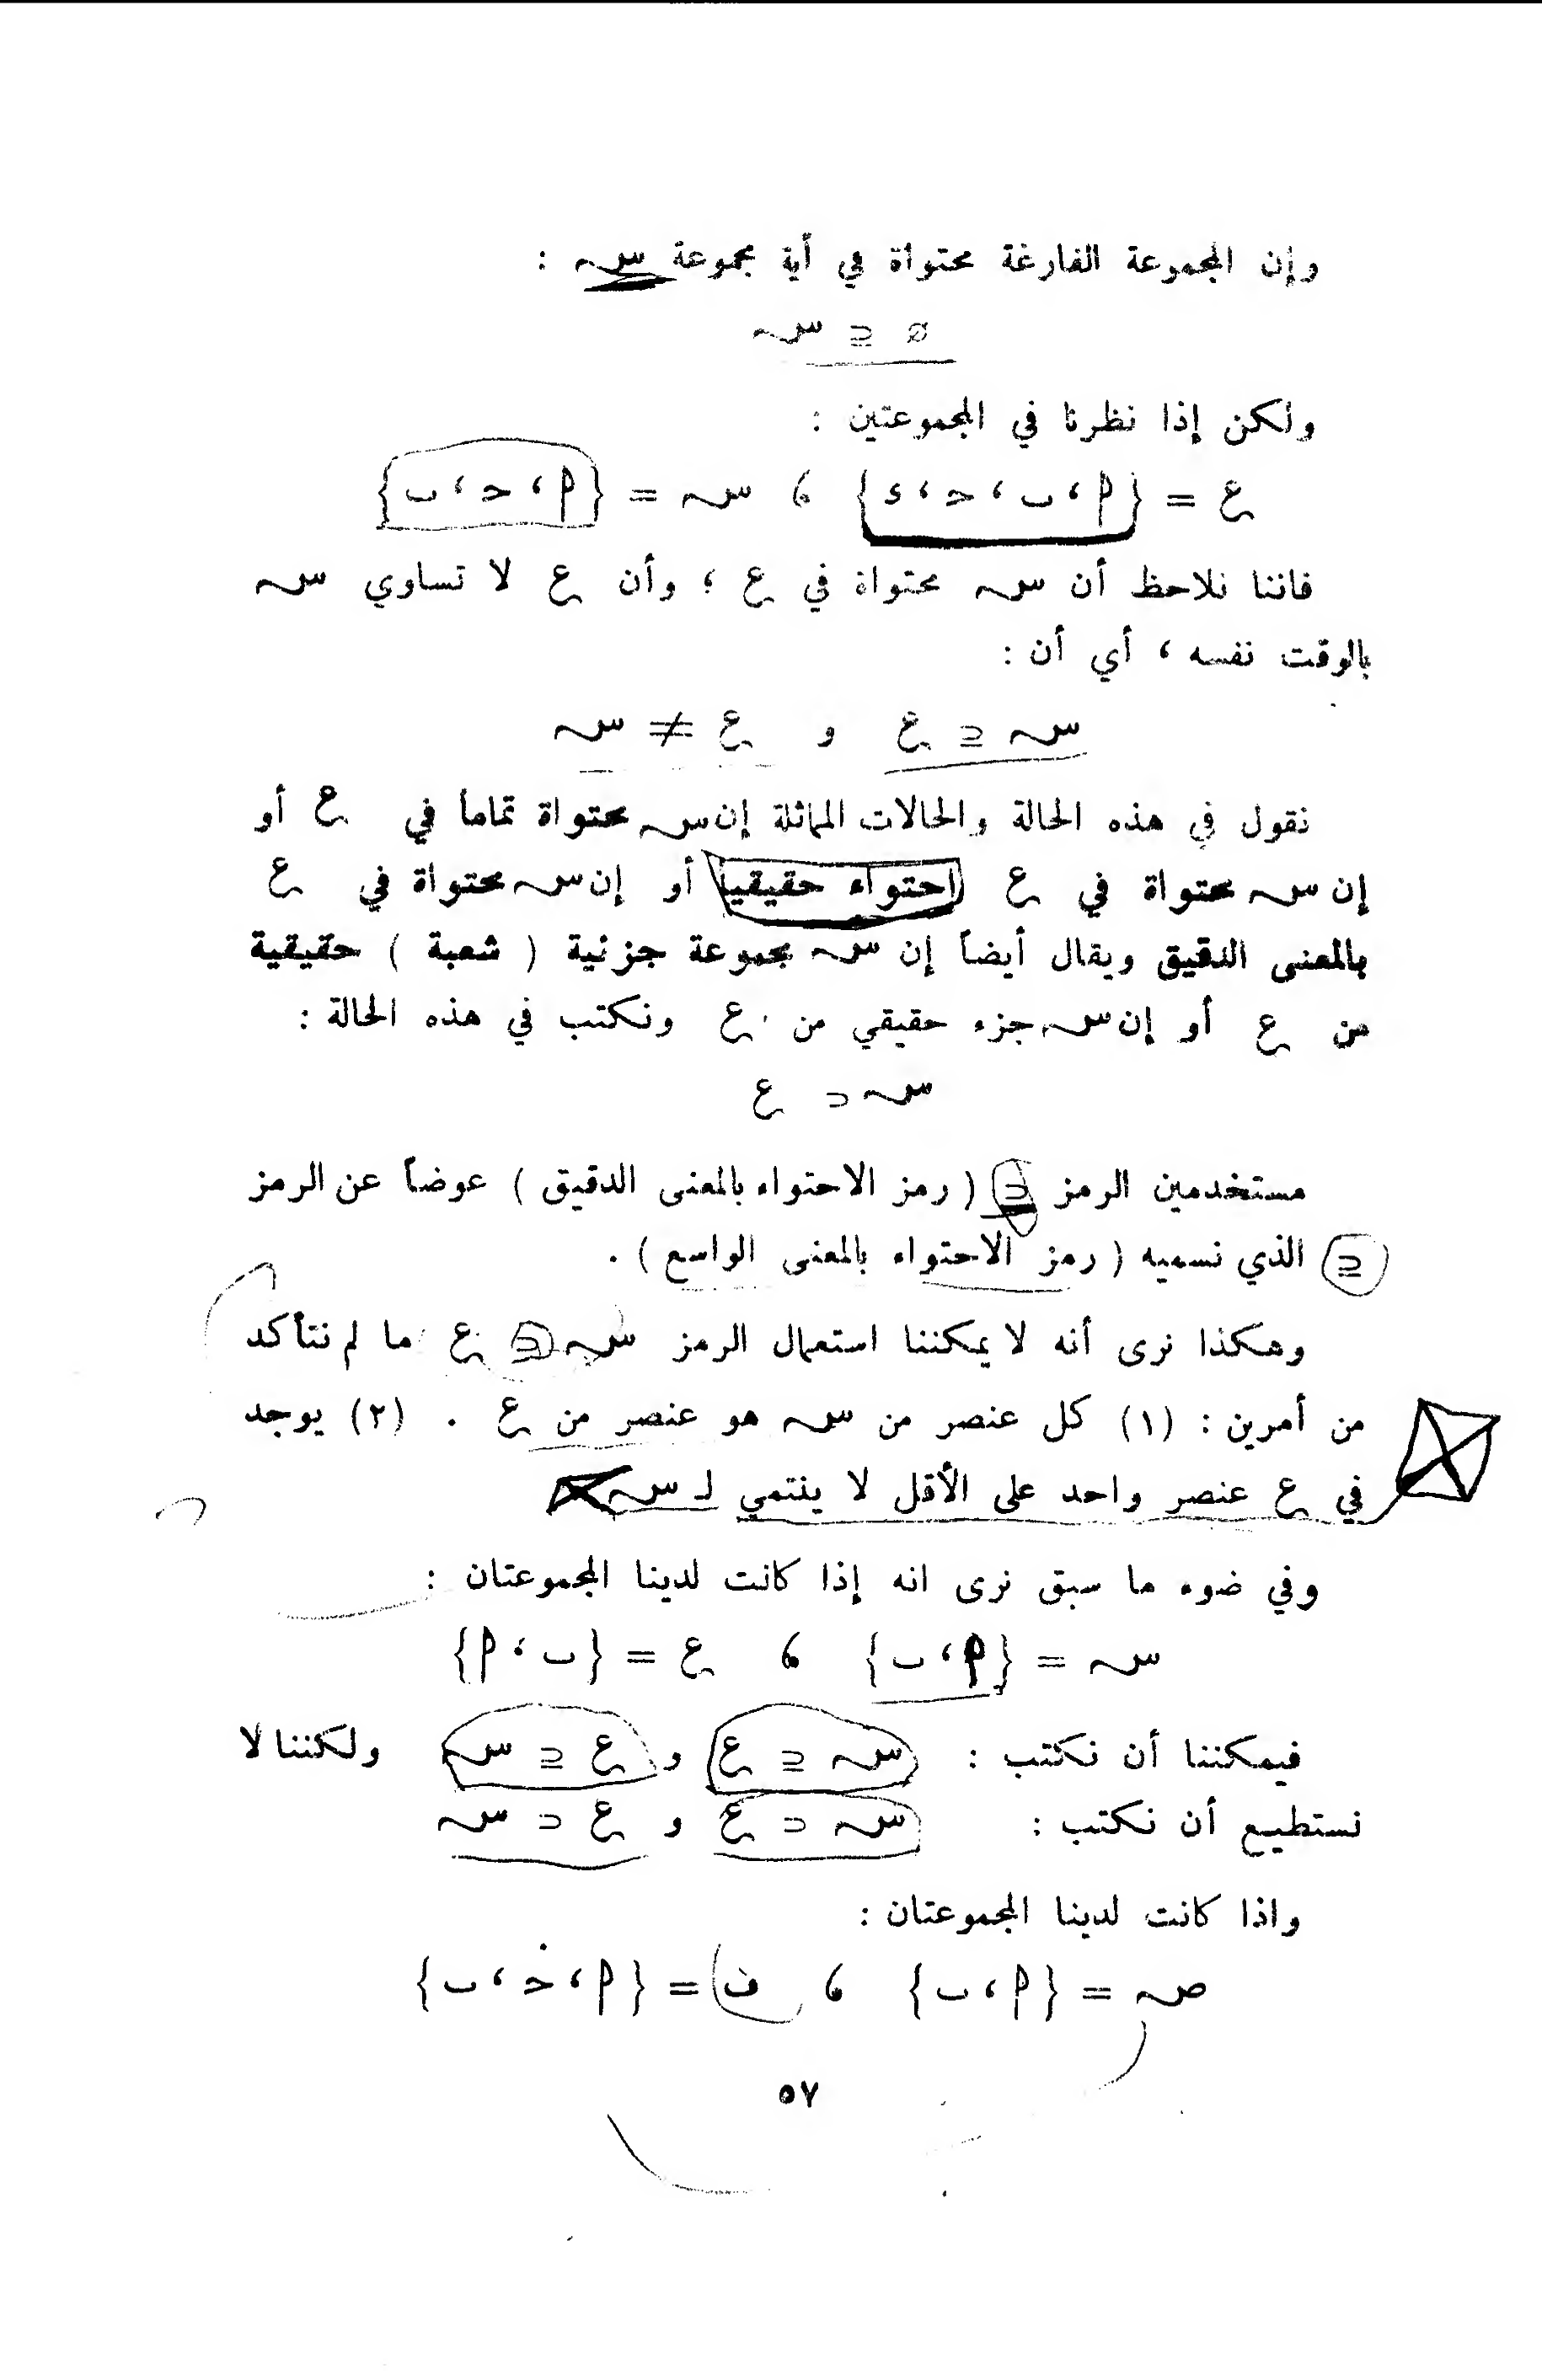 وإن المجموعة الفارغة محتواة في أية مجموعة سـ :
∅ ⊆ سـ
ولكن إذا نظرنا في المجموعتين :
ع = {م ، ب ، حـ ، ء} ، سـ = {م ، حـ ، ب}
فاننا نلاحظ أن سـ محتواة في ع ؛ وأن ع لا تساوي سـ
بالوقت نفسه ، أي أن :
سـ ⊆ ع و ع ≠ سـ
نقول في هذه الحالة والحالات المماثلة إن سـ محتواة تماماً في ع أو
إن سـ محتواة في ع احتواء حقيقيا أو إن سـ محتواة في ع
بالمعنى الدقيق ويقال أيضاً إن سـ مجموعة جزئية ( شعبة ) حقيقية
من ع أو إن سـ جزء حقيقي من ع ونكتب في هذه الحالة :
سـ ⊂ ع
مستخدمين الرمز ⊂ ( رمز الاحتواء بالمعنى الدقيق ) عوضاً عن الرمز
⊆ الذي نسميه ( رمز الاحتواء بالمعنى الواسع ) .
وهكذا نرى أنه لا يمكننا استعمال الرمز سـ ⊂ ع ما لم نتأكد
من أمرين : (١) كل عنصر من سـ هو عنصر من ع . (٢) يوجد
في ع عنصر واحد على الأقل لا ينتمي لـ سـ
وفي ضوء ما سبق نرى انه إذا كانت لدينا المجموعتان :
سـ = {م ، ب} ، ع = {ب ، م}
فيمكننا أن نكتب : سـ ⊆ ع و ع ⊆ سـ ولكننا لا
نستطيع أن نكتب : سـ ⊂ ع و ع ⊂ سـ
واذا كانت لدينا المجموعتان :
صـ = {م ، ب} ، ف = {م ، حـ ، ب}
٥٧